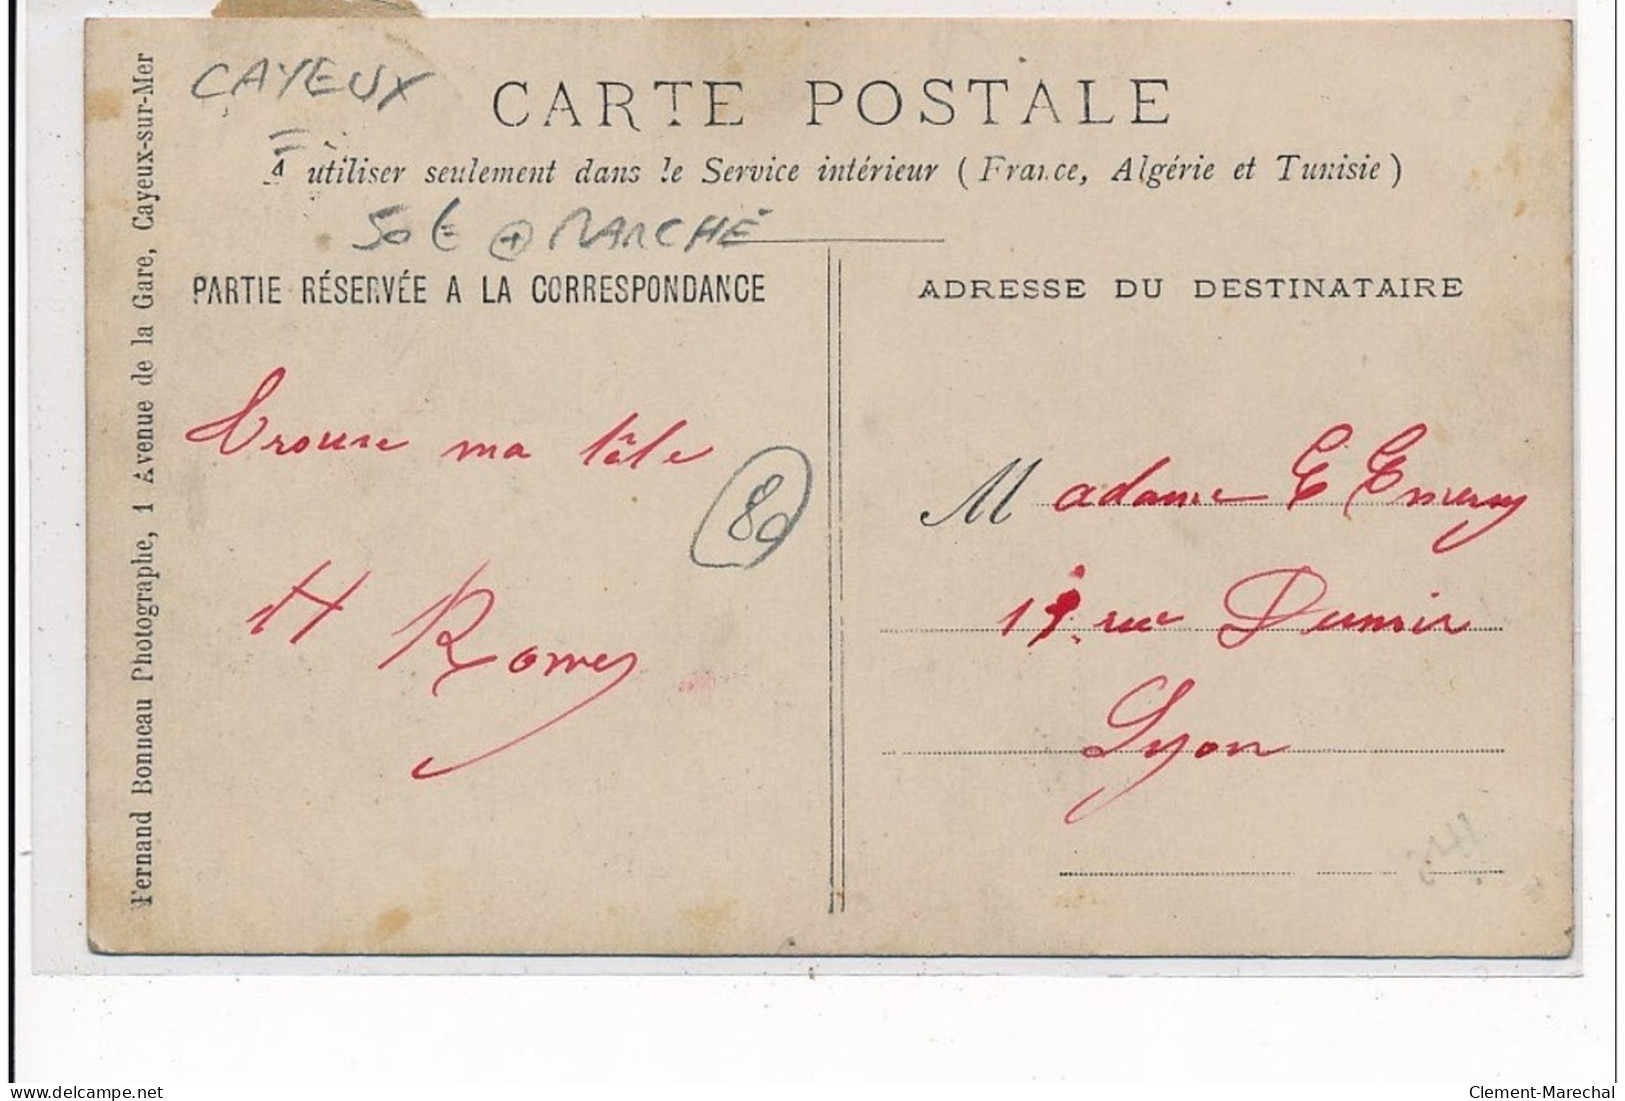 CAYEUX
CARTE POSTALE
A utiliser seulement dans le Service intérieur (France, Algérie et Tunisie)
50 € + MARCHÉ
PARTIE RÉSERVÉE A LA CORRESPONDANCE
ADRESSE DU DESTINATAIRE
Fernand Bonneau Photographe, 1 Avenue de la Gare, Cayeux-sur-Mer
trouve ma tête
80
H
Madame E Emery
rue Dumir
Lyon
delcampe.net
Clement-Marechal